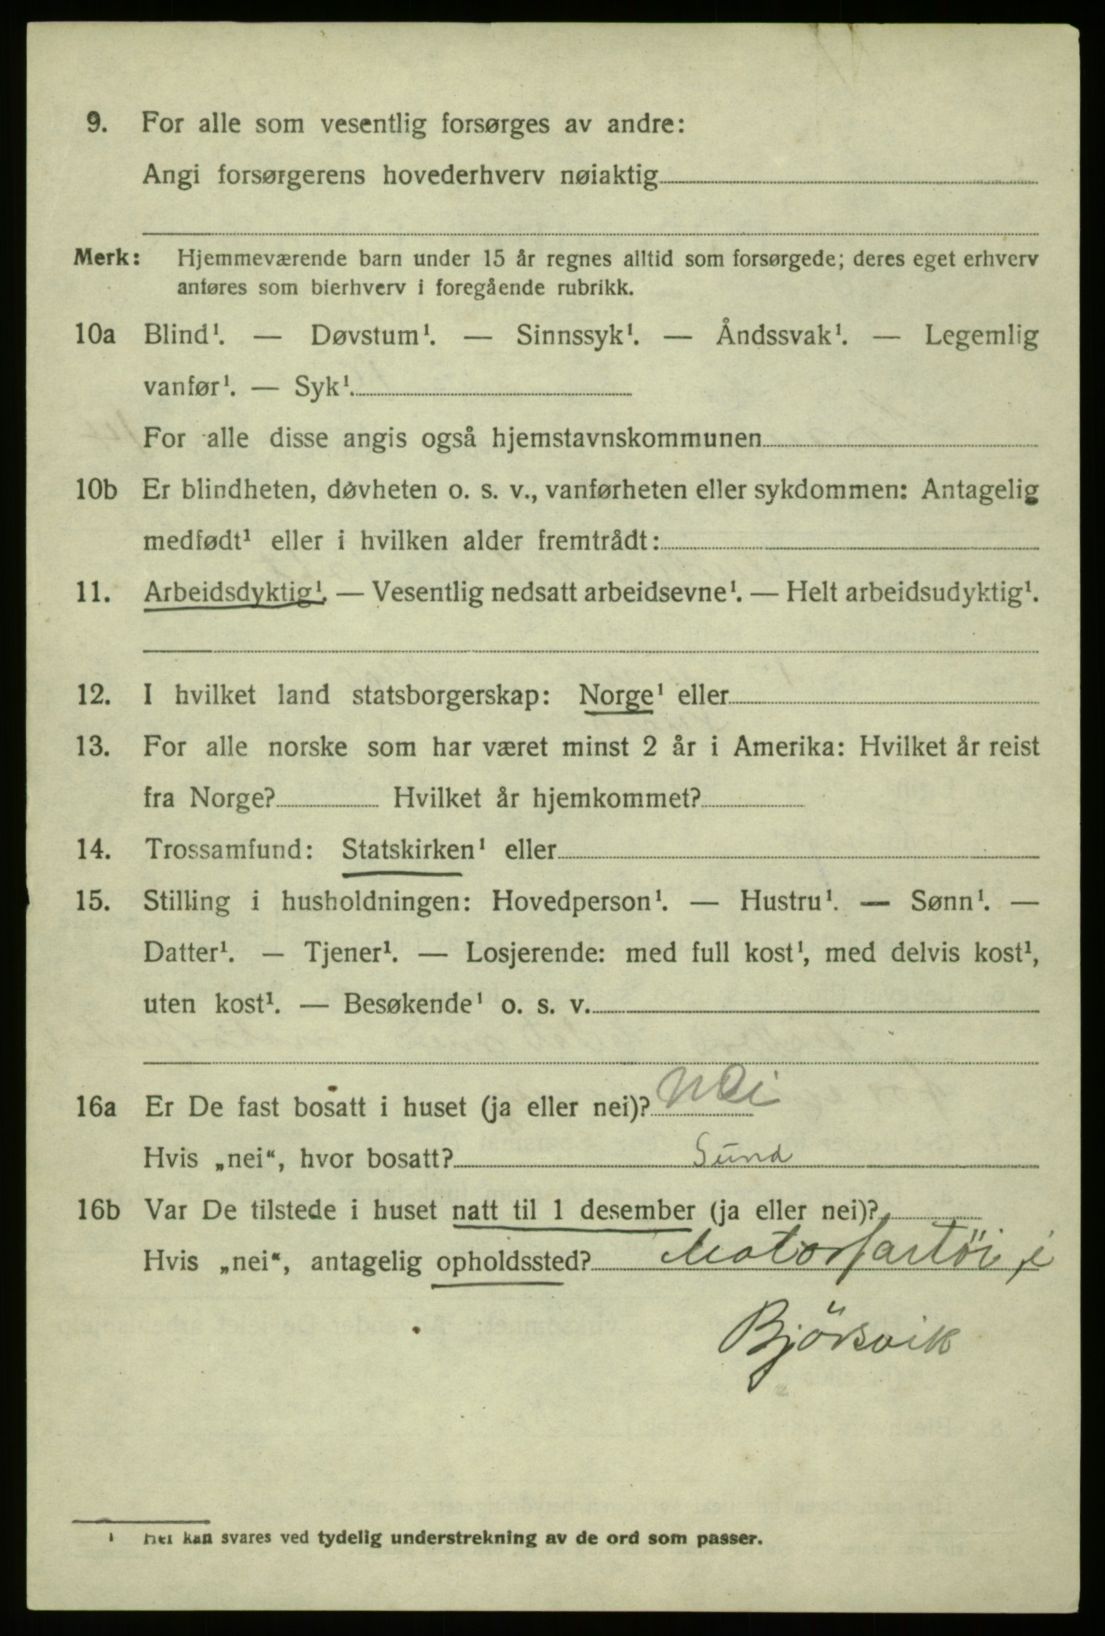 9. For alle som vesentlig forsørges av andre:
Angi forsørgerens hovederhverv nøiaktig
Merk: Hjemmeværende barn under 15 år regnes alltid som forsørgede; deres eget erhverv
anføres som bierhverv i foregående rubrikk.
10a Blind¹. — Døvstum¹. — Sinnssyk¹. — Åndssvak¹. — Legemlig
vanfør¹. — Syk¹.
For alle disse angis også hjemstavnskommunen
10b Er blindheten, døvheten o. s. v., vanførheten eller sykdommen: Antagelig
medfødt¹ eller i hvilken alder fremtrådt:
11. Arbeidsdyktig¹. — Vesentlig nedsatt arbeidsevne¹. — Helt arbeidsudyktig¹.
12. I hvilket land statsborgerskap: Norge¹ eller
13. For alle norske som har været minst 2 år i Amerika: Hvilket år reist
fra Norge? Hvilket år hjemkommet?
14. Trossamfund: Statskirken¹ eller
15. Stilling i husholdningen: Hovedperson¹. — Hustru¹. — Sønn¹. —
Datter¹. — Tjener¹. — Losjerende: med full kost¹, med delvis kost¹,
uten kost¹. — Besøkende¹ o. s. v.
16a Er De fast bosatt i huset (ja eller nei)? Nei
Hvis „nei“, hvor bosatt? Sund
16b Var De tilstede i huset natt til 1 desember (ja eller nei)?
Hvis „nei“, antagelig opholdssted? Motorfartöi i
Björsvik
¹ Det kan svares ved tydelig understrekning av de ord som passer.